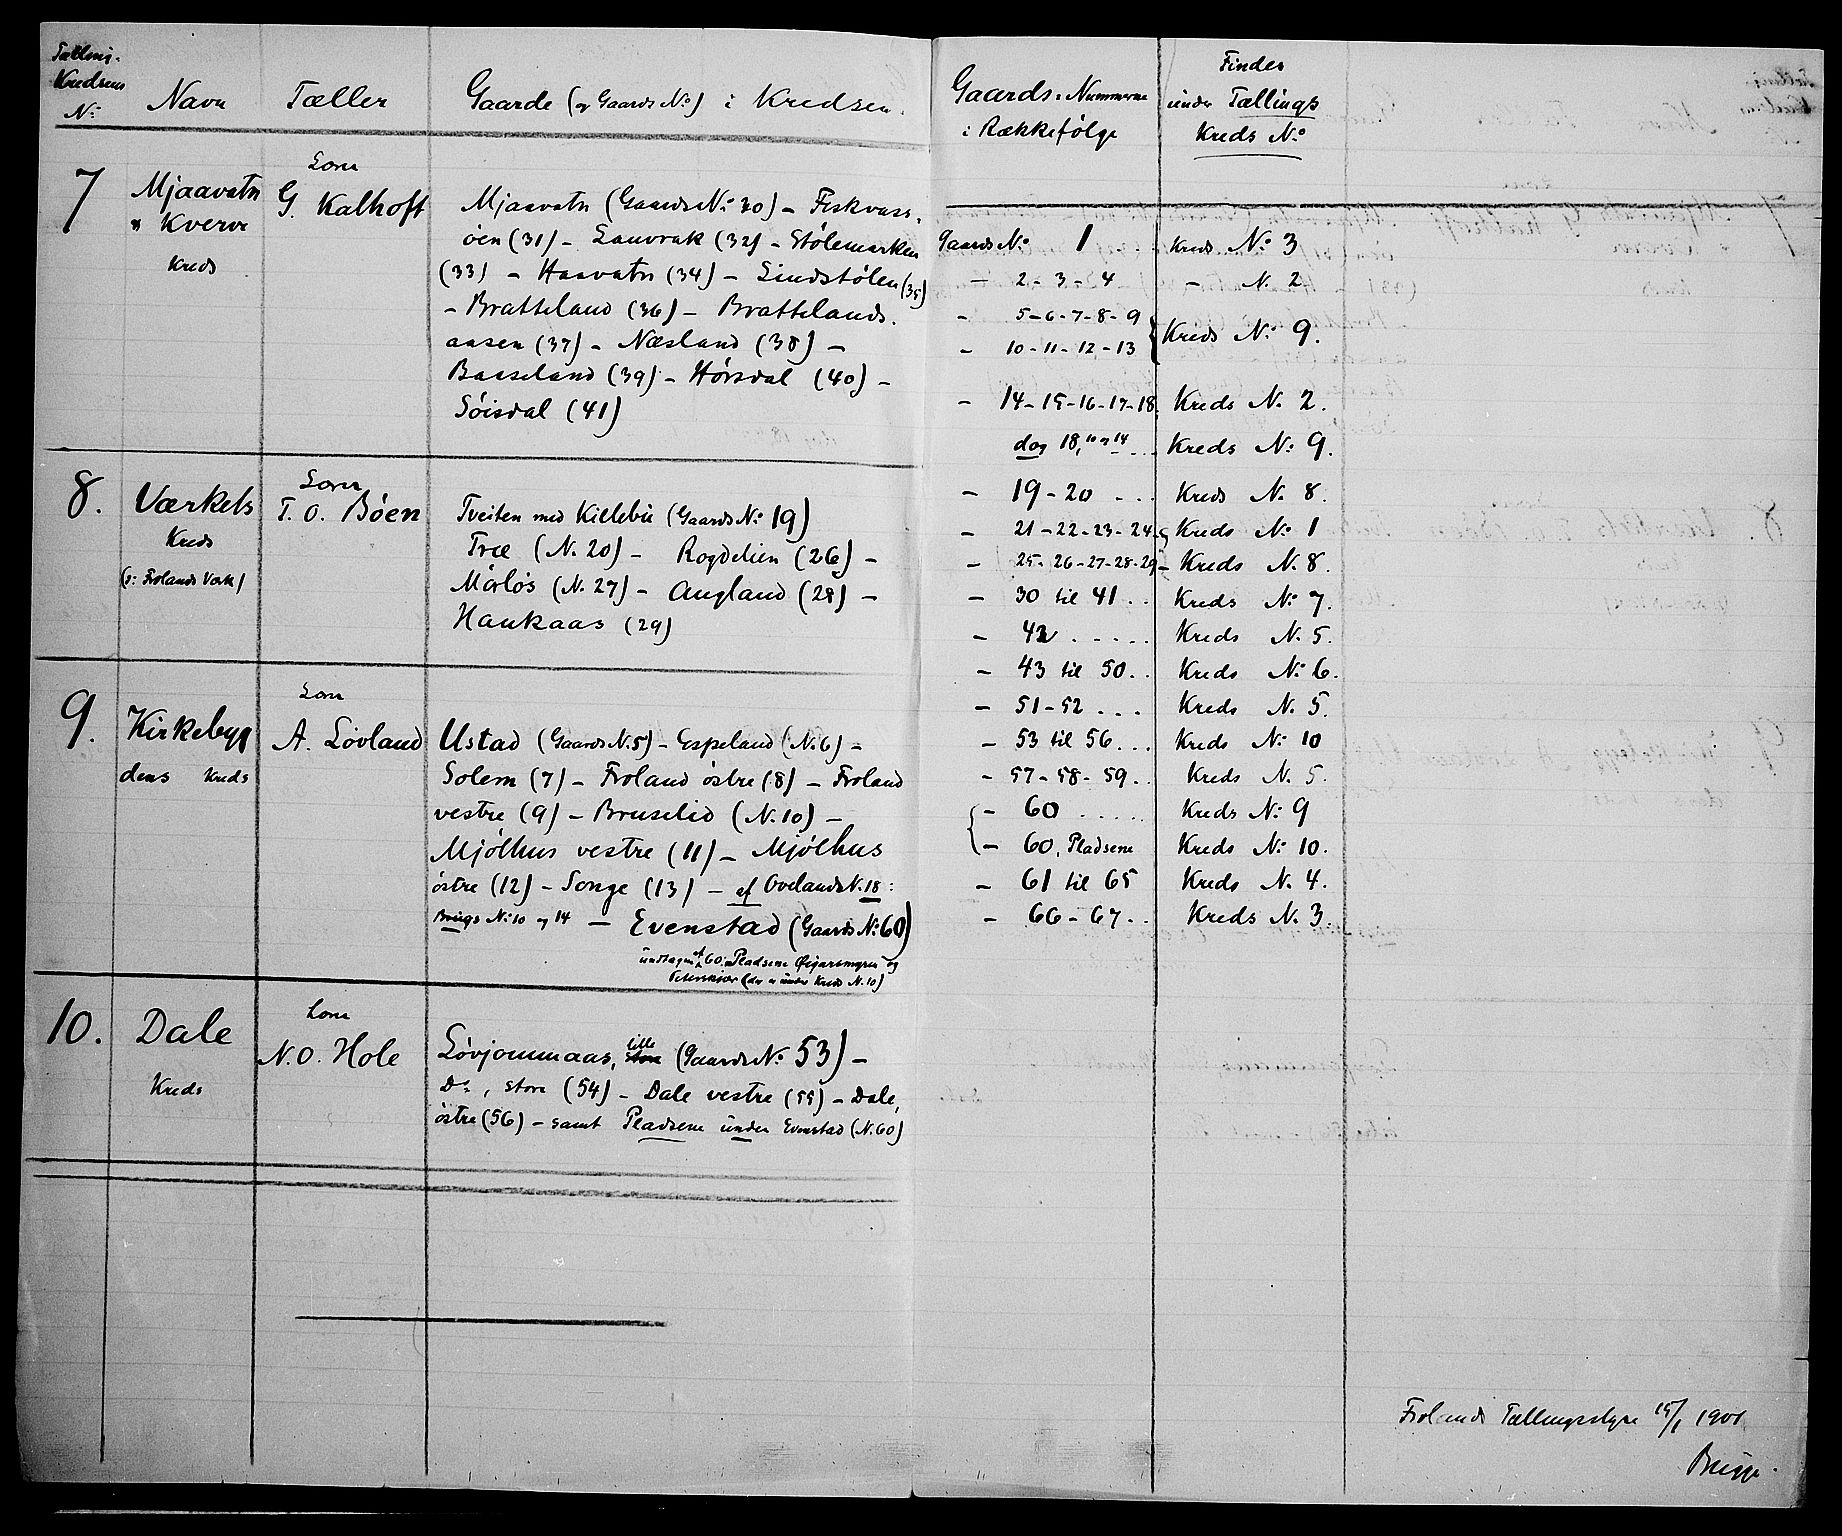 Tællings-
Kredsens
No
Navn
Tæller
Gaarde (og Gaards No) i Kredsen.
7
Mjaavatn
og Kverve
Kreds
G. Kalhoft
Mjaavatn (Gaards No 30) – Fiskvass-
öen (31) – Lauvrak (32) – Stölemarken
(33) – Haavatn (34) – Lindstölen (35)
– Bratteland (36) – Brattelands-
aasen (37) – Næsland (38) –
Baaseland (39) – Hörsdal (40) –
Söisdal (41)
8.
Værkets
Kreds
(ɔ: Frolands Værk)
T. O. Böen
Tveiten med Killebu (Gaards No 19)
Træ (No 20) – Rogdelien (26) –
Mörlös (No 27) – Augland (28) –
Haukaas (29)
9.
Kirkebyg
dens Kreds
A. Lövland
Ustad (Gaards No 5) – Espeland (No 6) –
Solem (7) – Froland östre (8) – Froland
vestre (9) – Bruselid (No 10) –
Mjölhus vestre (11) – Mjölhus
östre (12) – Songe (13) – af Ovelands No 18:
Brugs No 10 og 14 – Evenstad (Gaards No 60)
undtagen af 60: Pladsene og
(der er under Kreds No 10)
10.
Dale
Kreds
N. O. Hole
Lövjommaas, lille store (Gaards No 53) –
Do, store (54) – Dale vestre (55) – Dale,
östre (56) – samt Pladsene under Evenstad (No 60)
Gaards-Nummerne
i Rækkefölge
Findes
under Tællings
Kreds No
Gaards No 1 Kreds No 3
– 2 - 3 - 4 – No 2
– 5-6-7-8-9
– 10-11-12-13 Kreds No 9.
– 14-15-16-17-18. Kreds No 2.
dog 18, 10 og 14 ... Kreds No 9.
– 19-20 ... Kreds No 8.
– 21-22-23-24. Kreds No 1
– 25-26-27-28-29 – Kreds No 8.
– 30 til 41 .. Kreds No 7.
– 42 ..... Kreds No 5.
– 43 til 50 .. Kreds No 6.
– 51-52 ... Kreds No 5.
– 53 til 56 ... Kreds No 10
– 57-58-59 .. Kreds No 5.
– 60 ..... Kreds No 9
– 60, Pladsene Kreds No 10.
– 61 til 65 Kreds No 4.
– 66-67 .. Kreds No 3.
Frolands Tællingsstyre 15/1 1901